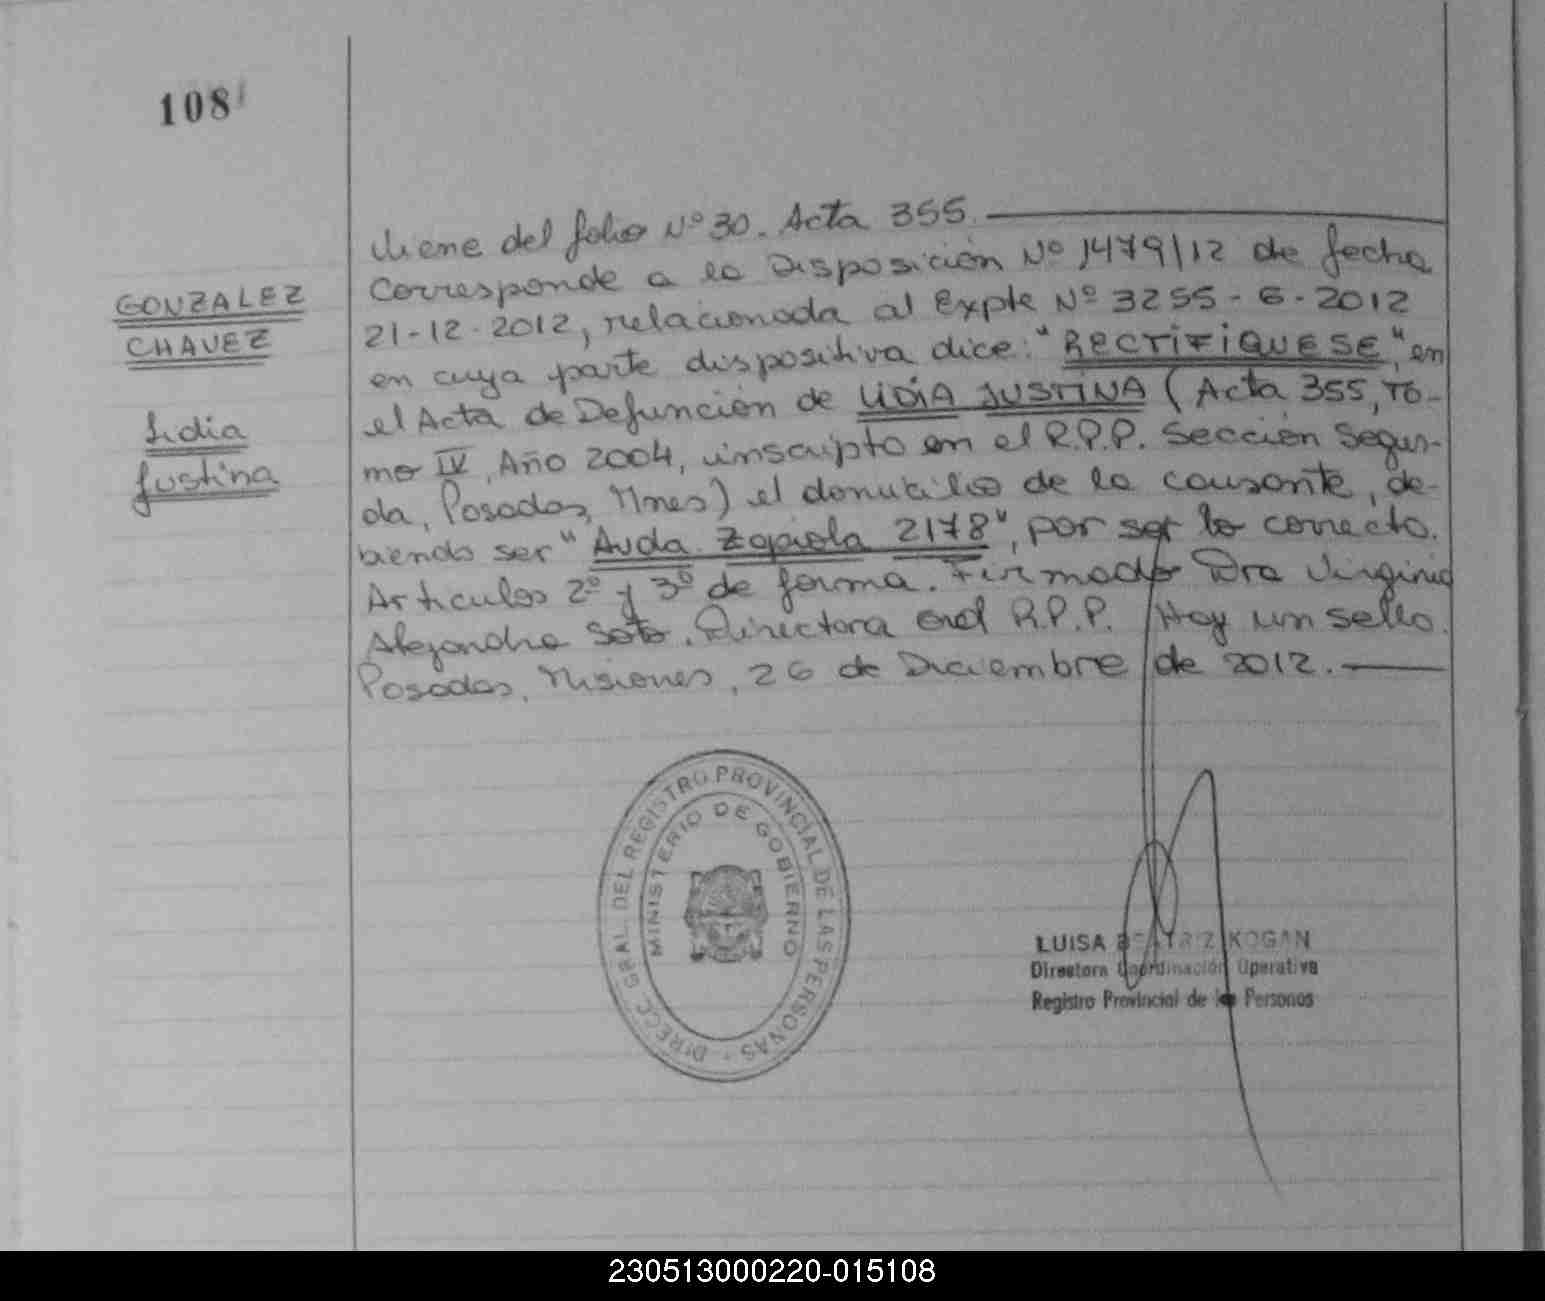 108
GONZALEZ
CHAVEZ
Lidia
Justina
Viene del folio Nº 30. Acta 355.
Corresponde a la Disposición Nº 1479/12 de fecha
21-12-2012, relacionada al Expte Nº 3255-6-2012
en cuya parte dispositiva dice: "RECTIFIQUESE", en
el Acta de Defunción de LIDIA JUSTINA (Acta 355, To-
mo IV, Año 2004, inscripto en el R.P.P. Sección Segun-
da, Posadas, Mnes) el domicilio de la causante, de-
biendo ser "Avda. 2178", por ser lo correcto.
Articulos 2º y 3º de forma. Firmado Dra Virginia
Alejandra Soto. Directora Gral R.P.P. Hay un sello.
Posadas, Misiones, 26 de Diciembre de 2012.
DIRECC. GRAL. DEL REGISTRO PROVINCIAL DE LAS PERSONAS
MINISTERIO DE GOBIERNO
LUISA BEATRIZ KOGAN
Directora Coordinación Operativa
Registro Provincial de las Personas
230513000220-015108